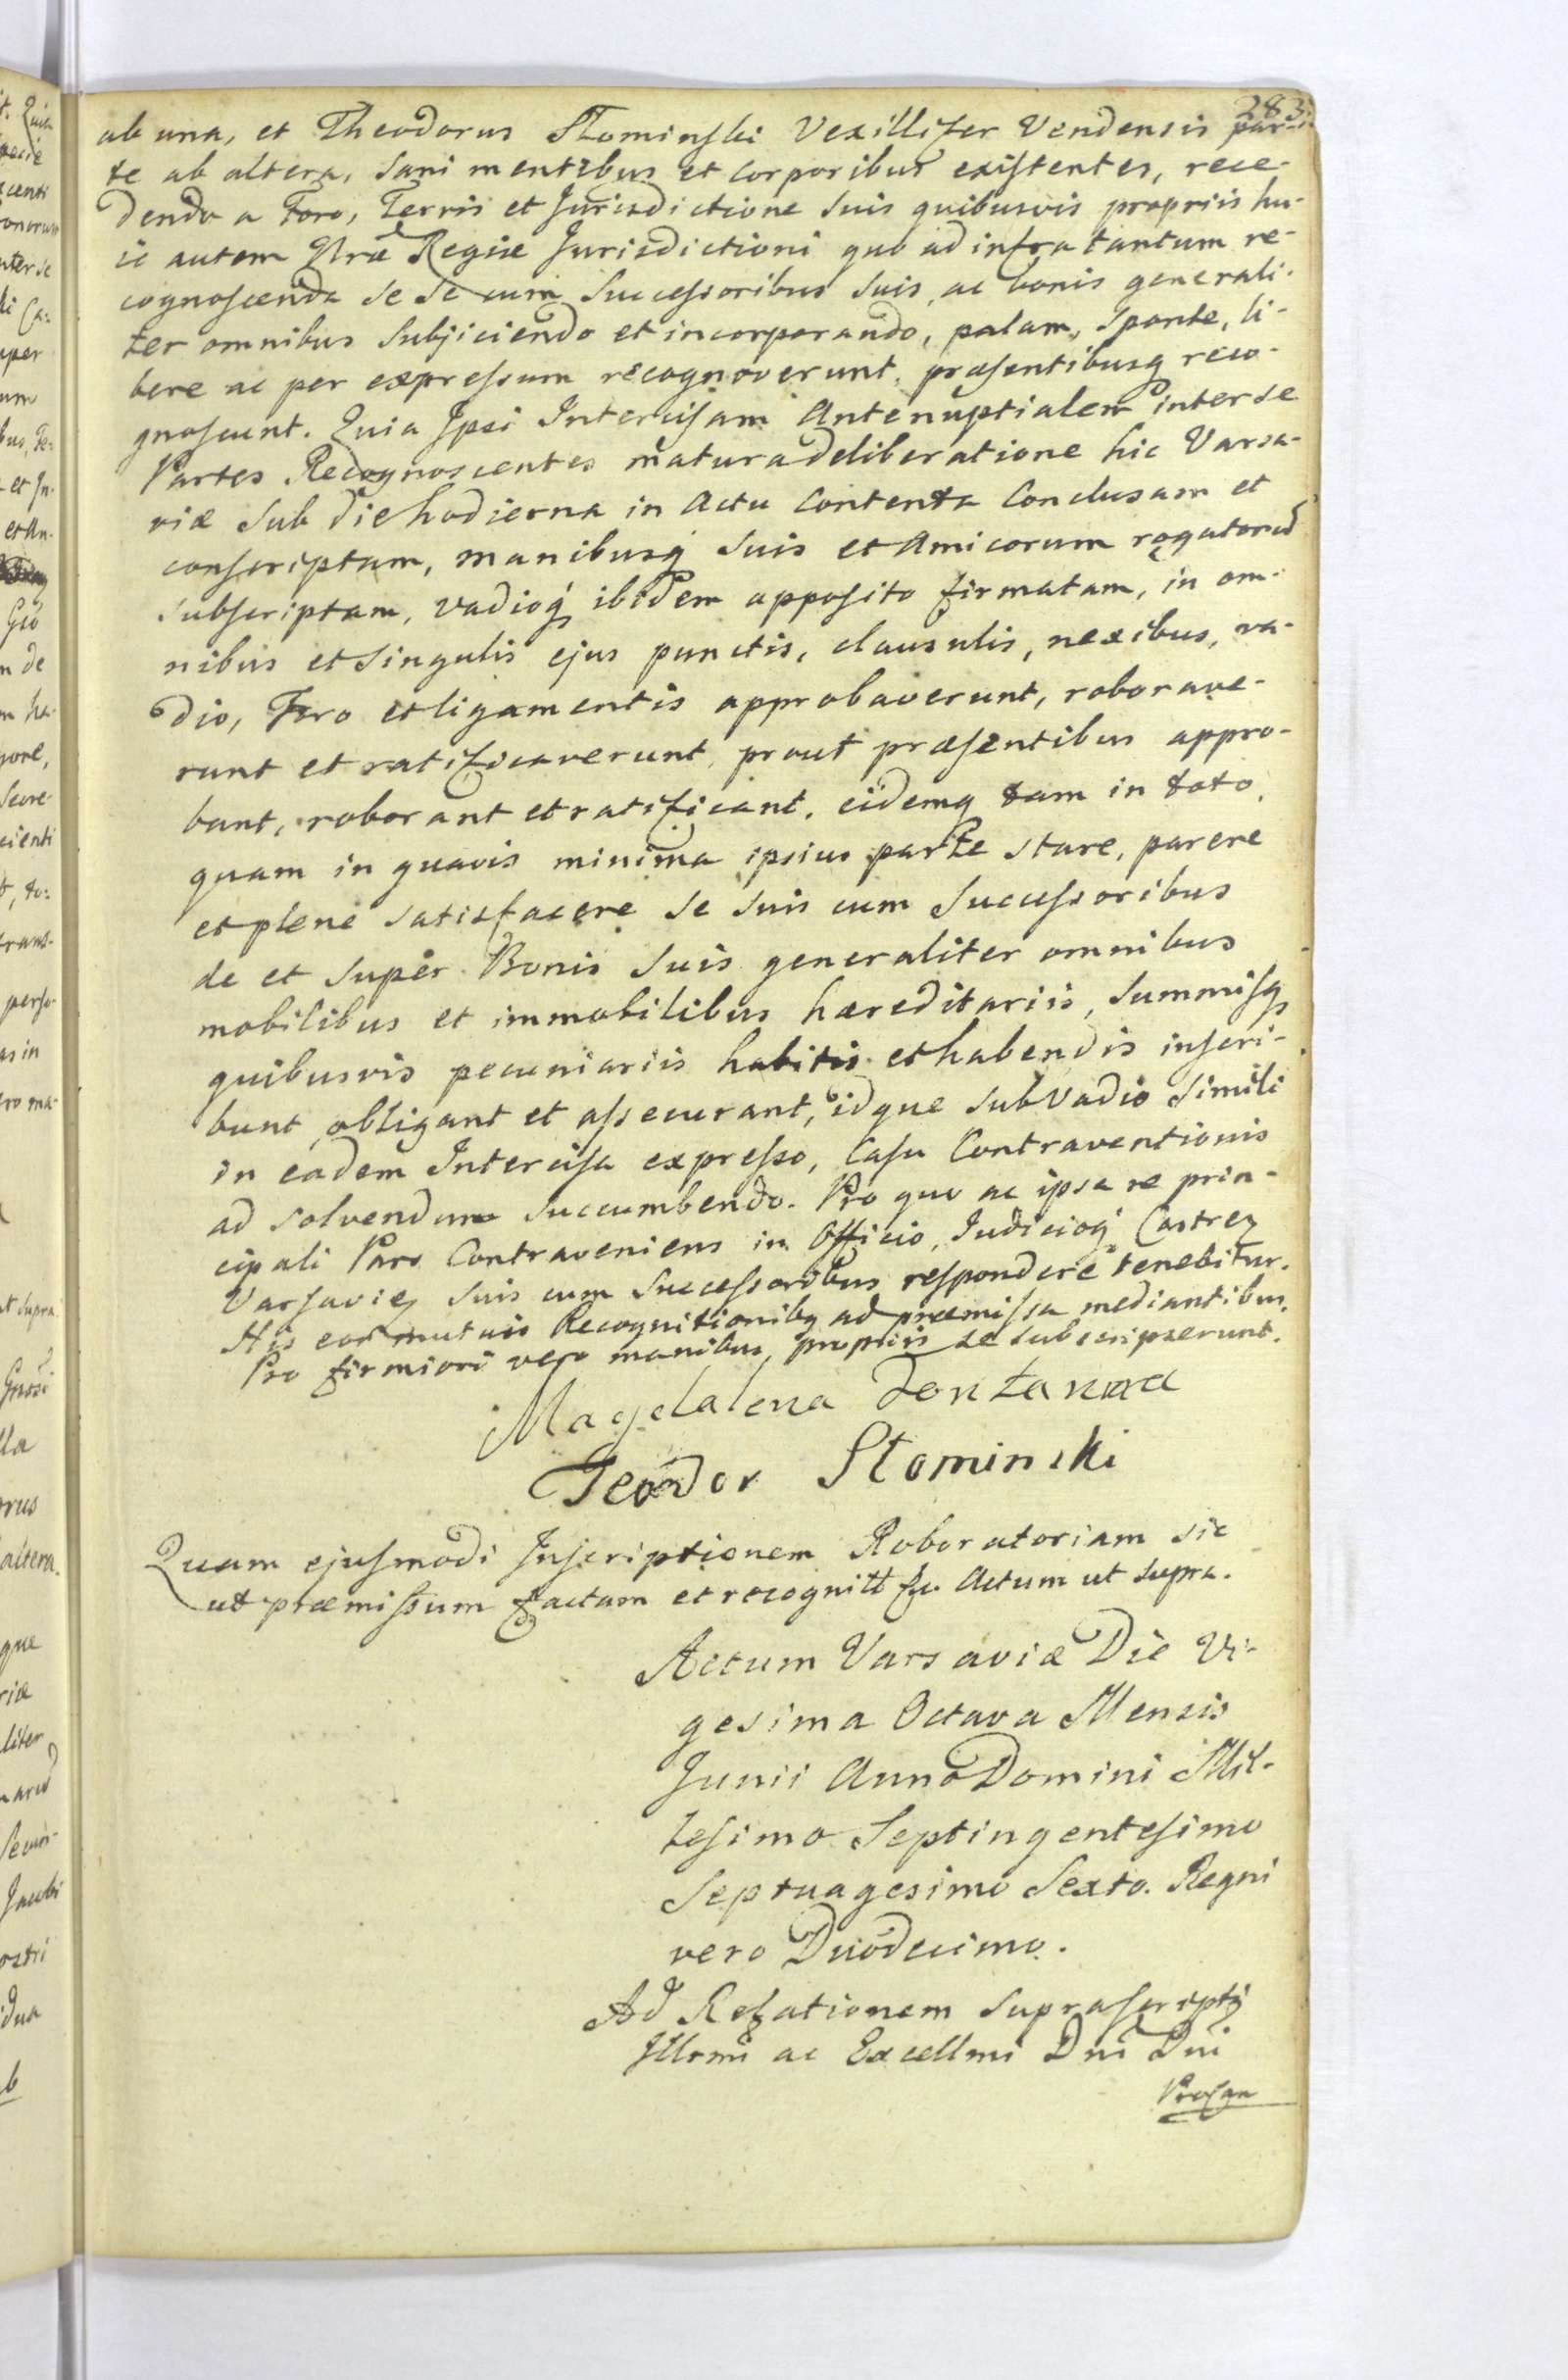 283.
ab una, et Theodorus Słominski Vexillifer Vendensis par-
te ab altera, sani mentibus et corporibus existentes, rece-
dendo a Foro, Terris et Jurisdictione suis quibusvis propriis hu-
ic autem Nræ Regiæ Jurisdictioni quo ad infra tantum re-
cognoscenda se se cum Successoribus suis, ac bonis generali-
ter omnibus Subjiciendo et incorporando, palam, sponte, li-
bere ac per expressum recognoverunt, præsentibusq reco-
gnoscunt. Quia Ipsi Intercisam Antenuptialem inter se
Partes Recognoscentes matura deliberatione hic Varsa-
viæ sub die hodierna in Actu Contenta Conclusam et
conscriptam, manibusq suis et Amicorum rogatorũ
subscriptam, vadioq ibidem apposito firmatam, in om-
nibus et singulis ejus punctis, clausulis, nexibus, va-
dio, Foro et ligamentis approbaverunt, roborave-
runt et ratificaverunt, prout præsentibus appro-
bant, roborant et ratificant, eidemq tam in toto,
quam in quavis minima ipsius parte stare, parere
et plene satisfacere se suis cum Successoribus
de et super Bonis suis generaliter omnibus
mobilibus et immobilibus hæreditariis, summisq
quibusvis pecuniariis habitis et habendis inscri-
bunt, obligant et assecurant, idque sub Vadio simili
in eadem Intercisa expresso, Casu Contraventionis
ad solvendum succumbendo. Pro quo ac ipsa re prin-
cipali Pars Contraveniens in Officio, Judicioq Castren
Varsavien suis cum Successoribus respondere tenebitur.
His eor mutuis Recognitionibq ad præmissa mediantibus.
Pro firmiori vero manibus propriis se subscripserunt.
Magdalena Fontanna
Teodor Słominski
Quam ejusmodi Inscriptionem Roboratoriam sic
ut præmissum factam et recognitt &c. Actum ut supra.
Actum Varsaviæ Die Vi-
gesima Octava Mensis
Junii Anno Domini Mil-
lesimo Septingentesimo
Septuagesimo Sexto. Regni
vero Duodecimo.
Ad Relationem suprascripti
Illrmi ac Excellmi Dni Dni
Procan